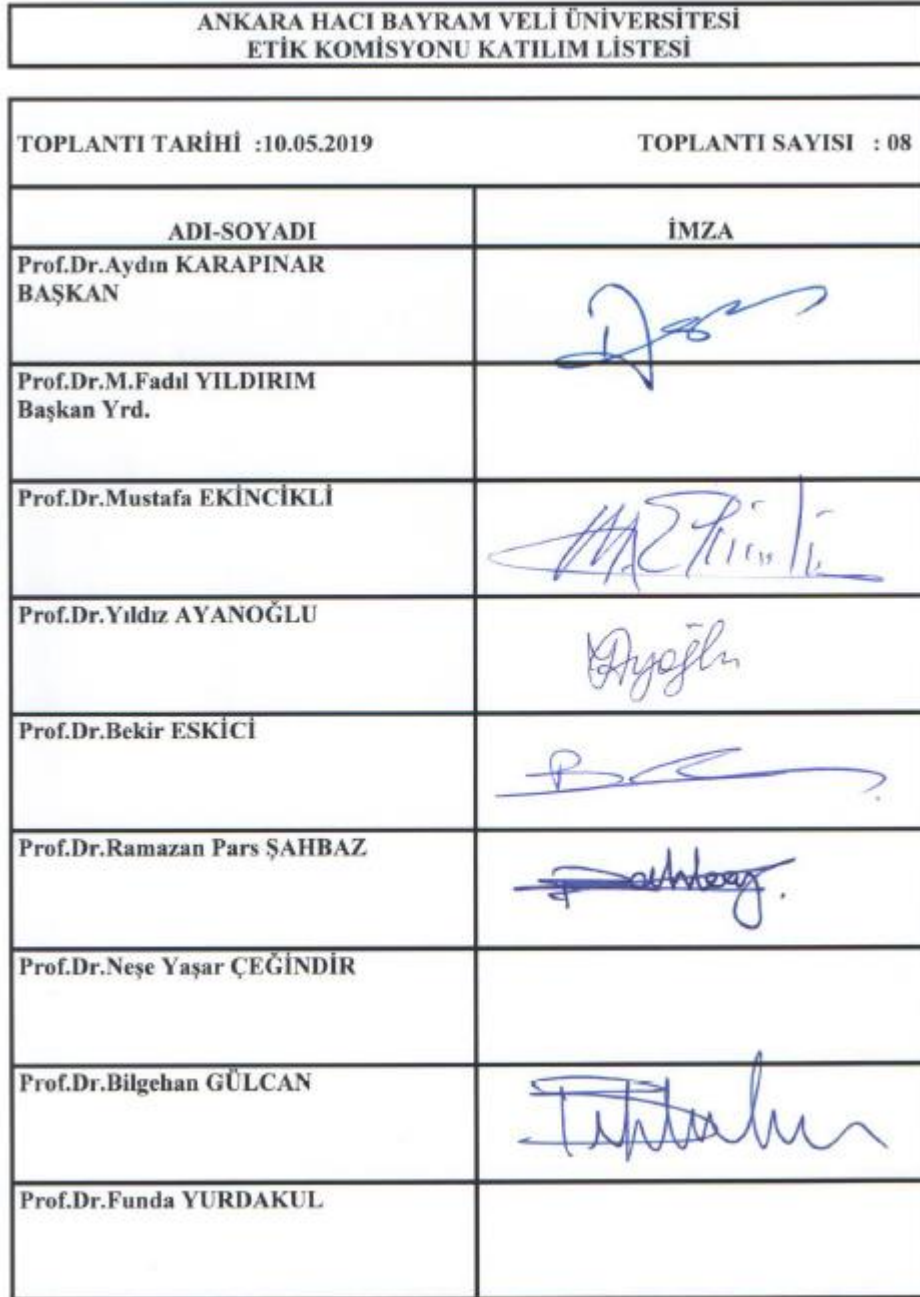 ANKARA HACI BAYRAM VELİ ÜNİVERSİTESİ
ETİK KOMİSYONU KATILIM LİSTESİ
TOPLANTI TARİHİ :10.05.2019 TOPLANTI SAYISI : 08
ADI-SOYADI İMZA
Prof.Dr.Aydın KARAPINAR
BAŞKAN
Prof.Dr.M.Fadıl YILDIRIM
Başkan Yrd.
Prof.Dr.Mustafa EKİNCİKLİ
Prof.Dr.Yıldız AYANOĞLU
Prof.Dr.Bekir ESKİCİ
Prof.Dr.Ramazan Pars ŞAHBAZ
Prof.Dr.Neşe Yaşar ÇEĞİNDİR
Prof.Dr.Bilgehan GÜLCAN
Prof.Dr.Funda YURDAKUL